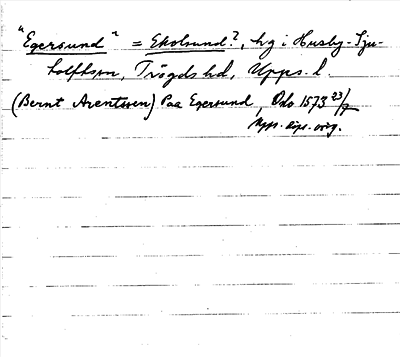 "Egersund" = Ekolsund?, hg i Husby-Sju-
tolftsn, Trögds hd, Upps. l.
(Bernt Arentssen) Paa Egersund, Oslo 1573 23/7
dipl. orig.